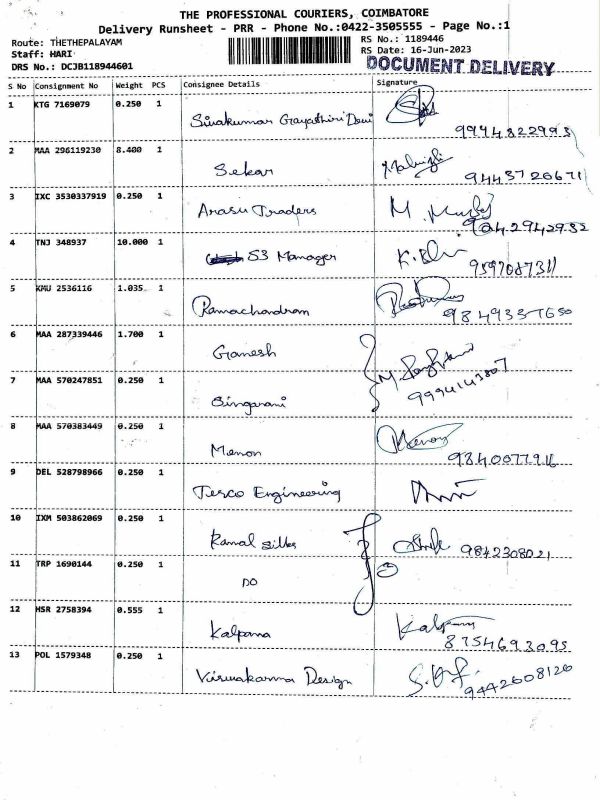 THE PROFESSIONAL COURIERS, COIMBATORE
Delivery Runsheet - PRR - Phone No.:0422-3505555 - Page No.:1
Route: THETHEPALAYAM RS No.: 1189446
Staff: HARI RS Date: 16-Jun-2023
DRS No.: DCJB118944601 DOCUMENT DELIVERY
S No Consignment No Weight PCS Consignee Details Signature
1 KTG 7169079 0.250 1 Sivakumar Gayathiri Devi
9994822993
2 MAA 296119230 8.400 1 Sekar
9443720671
3 IXC 3530337919 0.250 1 Arasu Traders M.
9042942932
4 TNJ 348937 10.000 1 S3 Manager
9597087311
5 KMU 2536116 1.035 1 Ramachandram
9849337650
6 MAA 287339446 1.700 1 Ganesh
7 MAA 570247851 0.250 1 Singarani
9994143807
8 MAA 570383449 0.250 1 Menon Menon
9840077916
9 DEL 528798966 0.250 1 Tesco Engineering
10 IXM 503862069 0.250 1 Kamal Silks 9842308021
11 TRP 1690144 0.250 1 DO
12 HSR 2758394 0.555 1 Kalpana
8754693095
13 POL 1579348 0.250 1 Viswakarma Design
9442608120